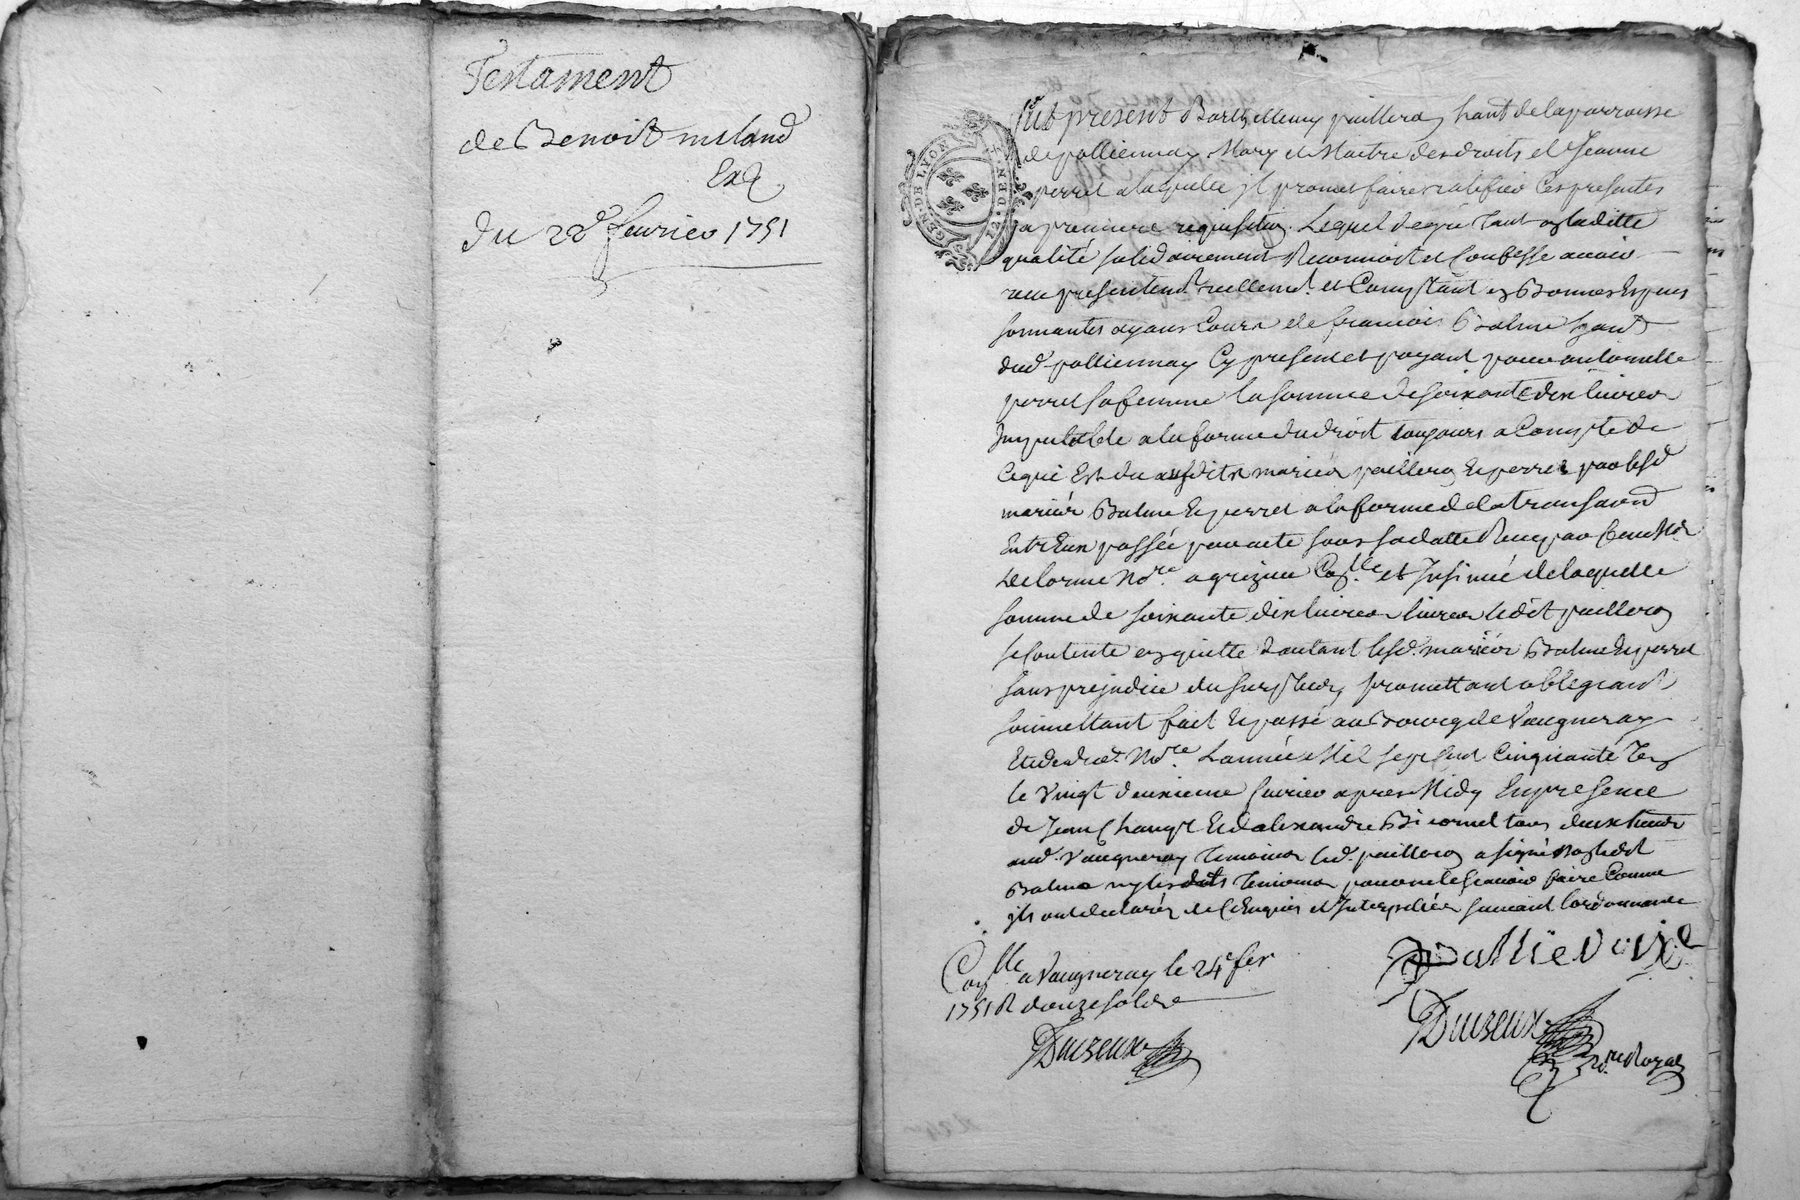 Testament
de Benoist miland
Exp
du 22e fevrier 1751
GEN. DE LYON
DEN.
Fut present Barthellemy paillera hant de la parroisse
de polliennay Mary et Maitre des droits de Jeanne
perret a laquelle jl promet faire ratifier ces presentes
a premiere requisition Lequel de gré tant a laditte
qualité solidairement Reconnoit et Confesse avoir
receu presentemt reellemt et Comptant en Bonnes Especes
sonnantes ayans Cours de francois Balme hant
dud polliennay Cy present et payant pour antoinette
perret sa femme la somme de soixante dix livres
Imputable a la forme du droit toujours a Compte de
Ce qui Est du ausdits mariés paillera Et perret par lesd
mariés Balme Et perret a la forme de la transaction
Entr Eux passée par acte sous sa datte Receu par
Delorme Nore a grezieu Collé et Insinué de laquelle
somme de soixante dix livres livres ledit paillera
se Contente en quitte d'autant lesd. mariés Balme Et perret
sans prejudice du surplus promettant obligeant
soumettant fait Et passé au Bourg de Vaugneray
Etude dud. Nore L'année Mil sept Cent Cinquante
le Vingt deuxieme fevrier apres Midy En presence
de Jean Et d'alexandre tous deux
aud. Vaugneray Temoins led. paillera a signé non ledit
Balme ny lesdits Temoins pour ne le scavoir faire Comme
jls ont declarés de Ce Enquis et Interpellés suivant l'ordonnance
Collé a Vaugneray le 24e fer
1751 R douze sols
Duizeux
Duizeux
Nre Royal